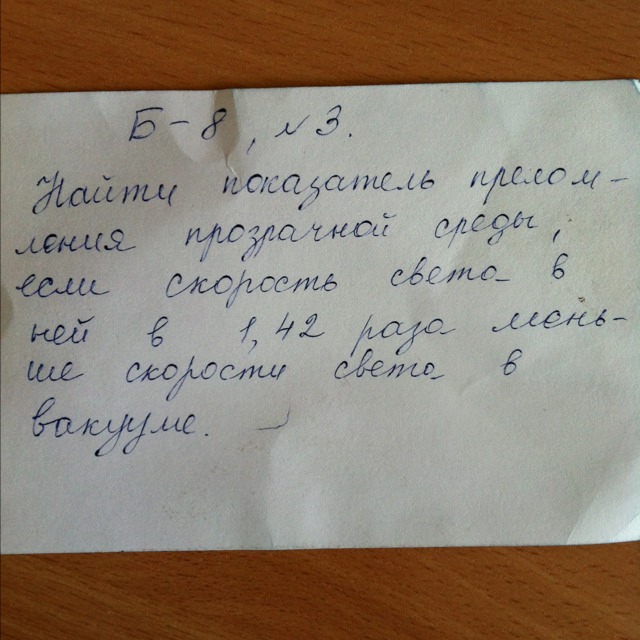 Б-8, № 3.
Найти показатель прелом-
ления прозрачной среды,
если скорость света в
ней в 1,42 раза мень-
ше скорости света в
вакууме.